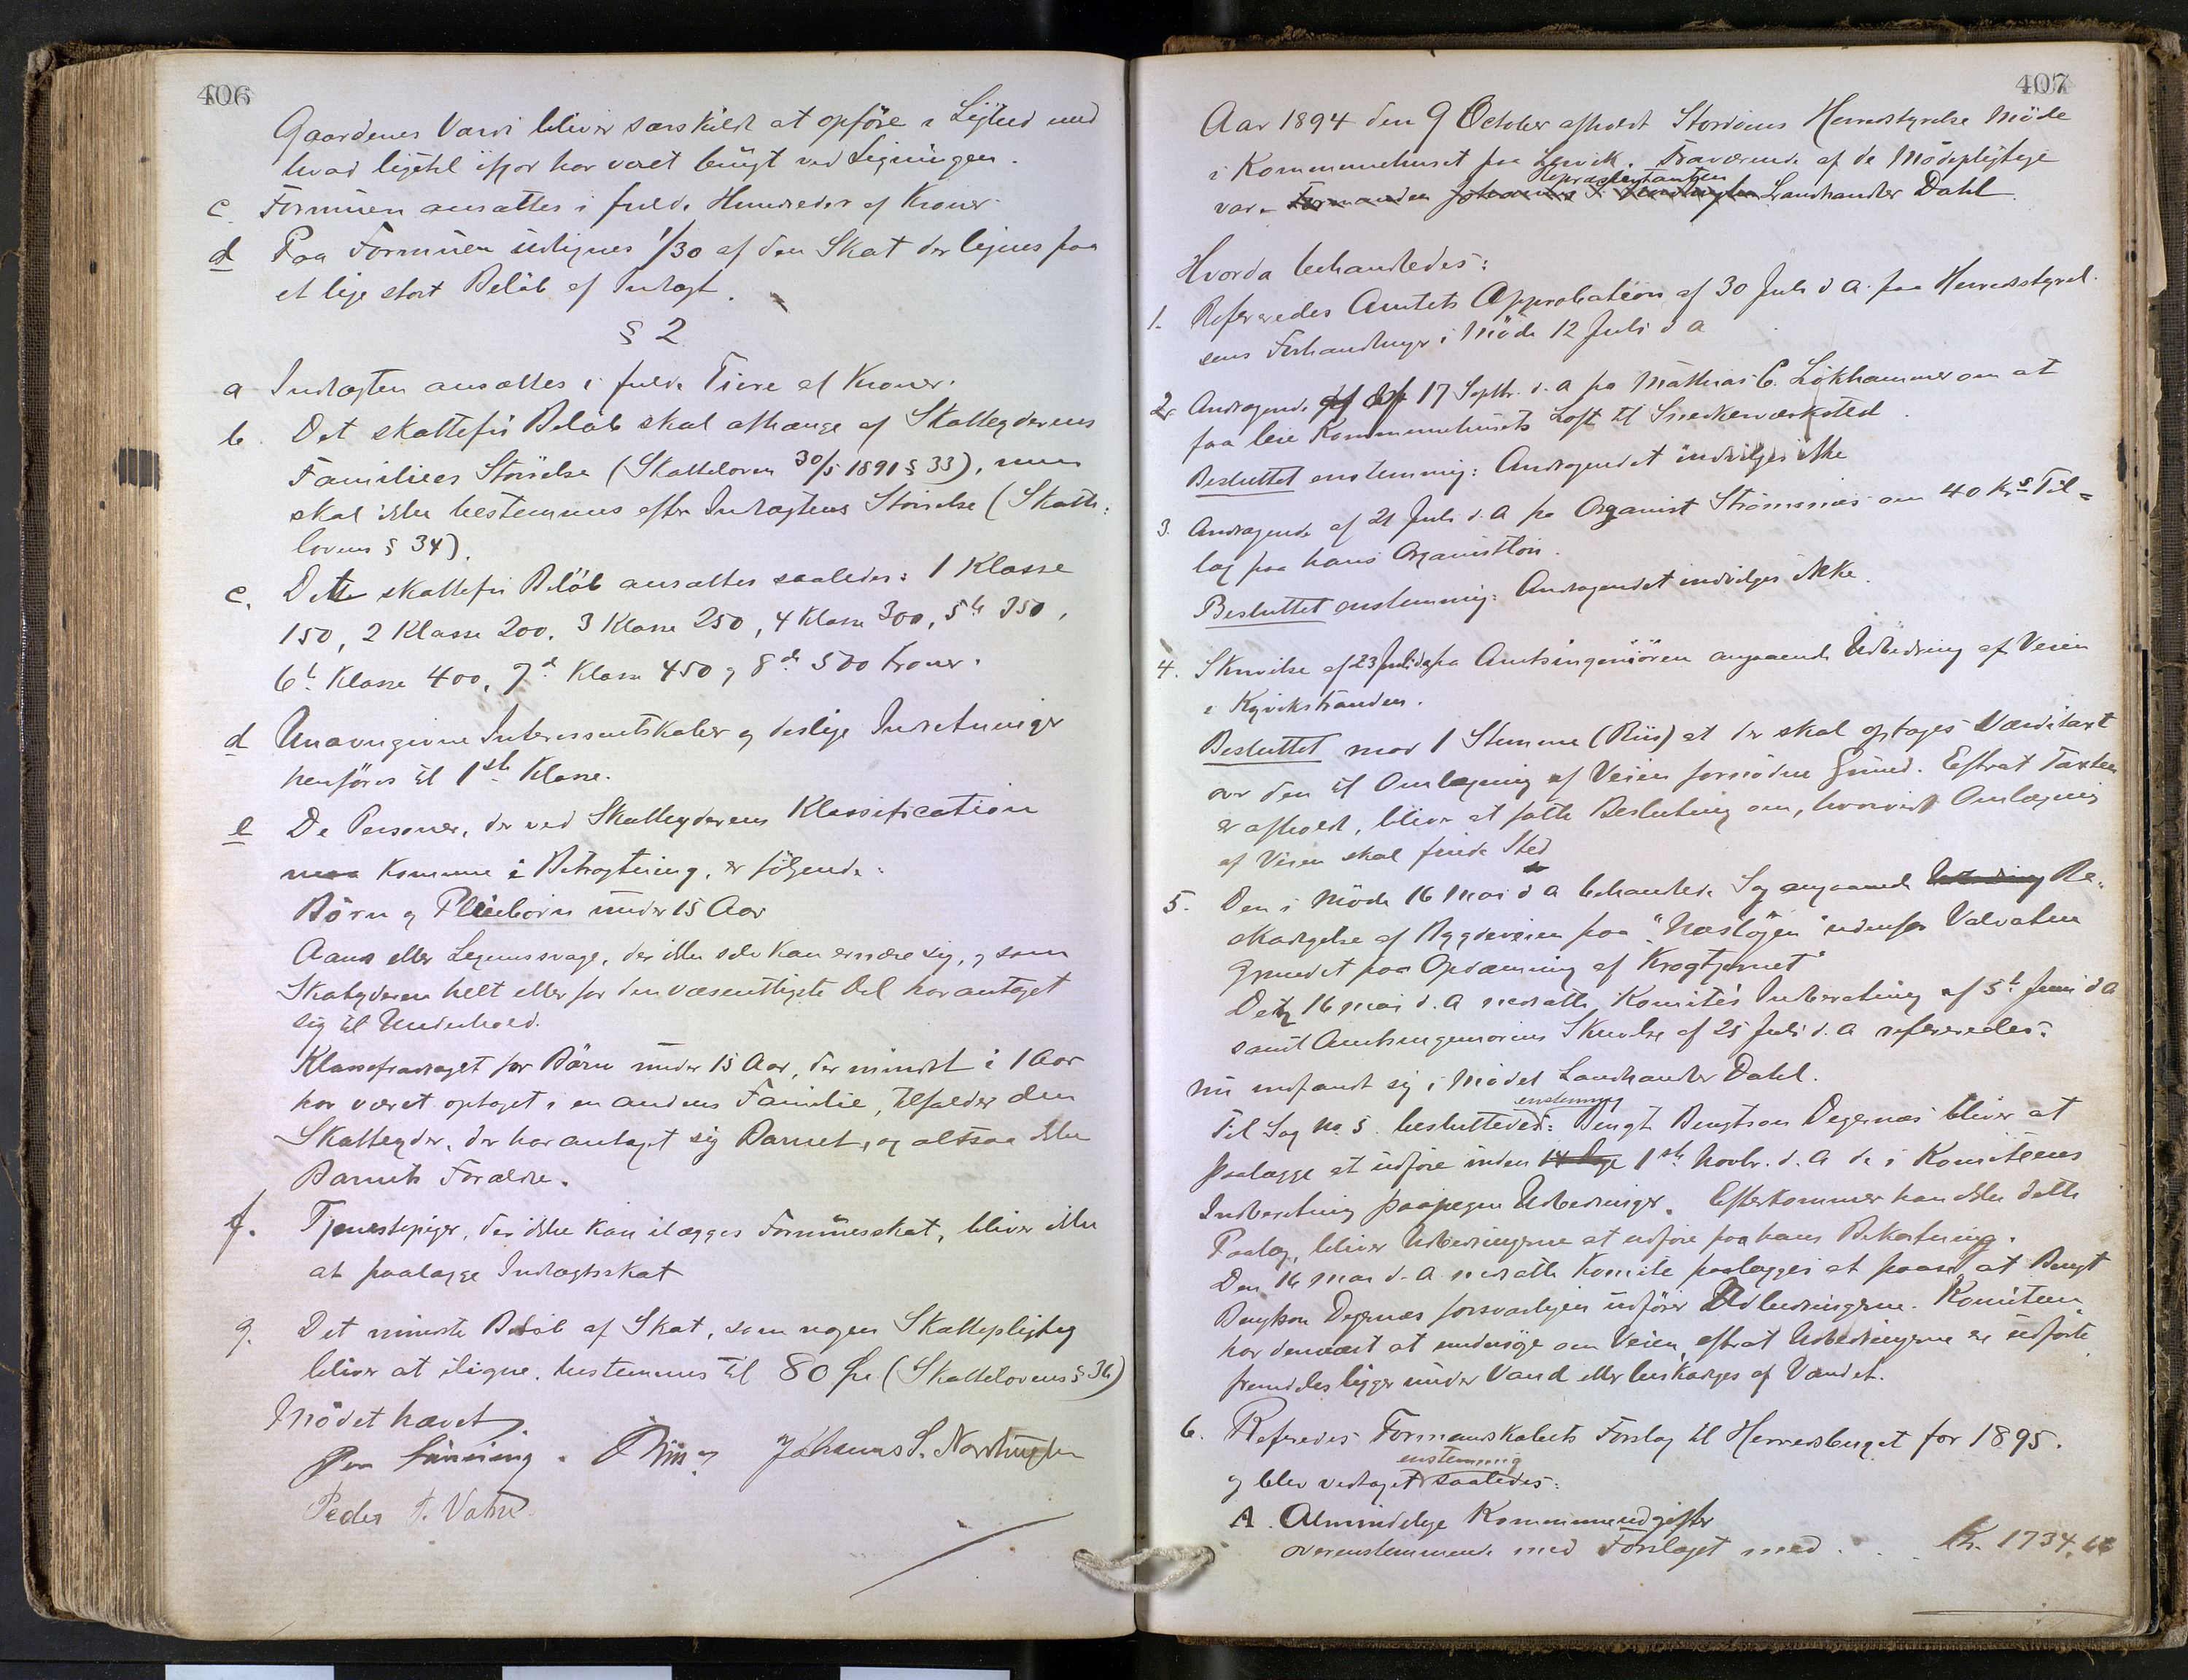 406
Gaardenes Værdi bliver særskildt at opføre i Lighed med
hvad ligetil ifjor har været brugt ved Ligningen.
c. Formuen ansættes i fulde Hundreder af Kroner.
d Paa Formuen udlignes 1/30 af den Skat der lignes paa
et lige stort Beløb af Indtægt.
§ 2
a Indtægten ansættes i fulde Tiere af Kroner.
b. Det skattefri Beløb skal afhænge af Skatteyderens
Families Størrelse (Skatteloven 30/5 1891 § 33), men
skal ikke bestemmes efter Indtægtens Størrelse (Skatte:
lovens § 34).
c. Dette skattefri Beløb ansættes saaledes: 1 Klasse
150, 2 Klasse 200, 3 Klasse 250, 4 Klasse 300, 5te 350,
6te Klasse 400, 7de Klasse 450 og 8de 500 kroner.
d Unavngivne Interessentskaber og deslige Indretninger
henføres til 1ste Klasse.
e De Personer, der ved Skatteyderens Klassification
maa komme i Betragtning, er følgende:
Børn og Pleiebørn under 15 Aar
Aands eller Legemssvage, der ikke selv kan ernære sig, og som
Skatyderen helt eller for den væsentligste Del har antaget
sig til Underhold.
Klassefradraget for Børn under 15 Aar, der mindst i 1 Aar
har været optaget i en andens Familie, tilfalder den
Skatteyder, der har antaget sig Barnet, og altsaa ikke
Barnets Forældre.
f. Tjenestepiger, der ikke kan ilægges Formuesskat, bliver ikke
at paalægge Indtægtsskat
g. Det mindste Beløb af Skat, som nogen Skattepligtig
bliver at iligne, bestemmes til 80 Øre (Skattelovens § 36)
Mødet hævet
Johannes S.
Peder T. Vatne
407
Aar 1894 den 9 October afholdt Stordøens Herredstyrelse Møde
i Kommunehuset paa Lervik. Fraværende af de Mødepligtige
Repræsentanten
var. Formanden Johannes S. Landhandler Dahl.
Hvorda behandledes:
1. Refereredes Amtets Approbation af 30 Juli d A. paa Herredsstyrel.
sens Forhandlinger i Møde 12 Juli d a
2. Andragende 17 Septbr. d. A fra Mathias C. Løkhammer om at
faa leie Kommunehusets Loft til Snedkerværksted.
Besluttet enstemmig: Andragendet indvilges ikke
3. Andragende af 21 Juli d. A fra Organist Strømsnæs om 40 Krs Til=
læg paa hans Organistløn.
Besluttet enstemmig: Andragendet indvilges ikke.
4. Skrivelse af 23 Juli d a fra Amtsingeniøren angaaende Udbedring af Veien
i Kyvikstranden.
Besluttet mod 1 Stemme (Riis) at der skal optages Værditaxt
over den til Omlægning af Veien fornødne Grund. Efterat Taxten
er afholdt, bliver at fatte Beslutning om, hvorvidt Omlægning
af Veien skal finde Sted
5. Den i Møde 16 Mai d A behandlede Sag angaaende Udbedring Be.
skadigelse af Bygdeveien paa "Næsløgen" udenfor Valvatna
grundet paa Opdæmning af Krogtjernet
Den 16 Mai d. A nedsatte Komite's Indberetning af 5te Juni d A
samt Amtsingeniørens Skrivelse af 25 Juli d. A refereredes.
Nu indfandt sig i Mødet Landhandler Dahl.
enstemmig
Til Sag No. 5. besluttedes: Bengt Bengtson Degernæs bliver at
paalægge at udføre inden 14 Dage 1ste Novbr. d. A de i Komiteens
Indberetning paapegte Udbedringer. Efterkommer han ikke dette
Paalæg, bliver Udbedringerne at udføre paa hans Bekostning.
Den 16 Mai d. A nedsatte Komite paalægges at paase, at Bengt
Bengtson Degernæs forsvarligen udfører Udbedringerne. Komiteen
har dernæst at undersøge om Veien, efterat Udbedringerne er udførte,
fremdeles ligger under Vand eller beskadiges af Vandet.
6. Referedes Formandskabets Forslag til Herredsbuget for 1895.
enstemmig
og blev vedtaget saaledes:
A. Almindelige Kommuneudgifter
overenstemmende med Forslaget med . . . Kr. 1734,